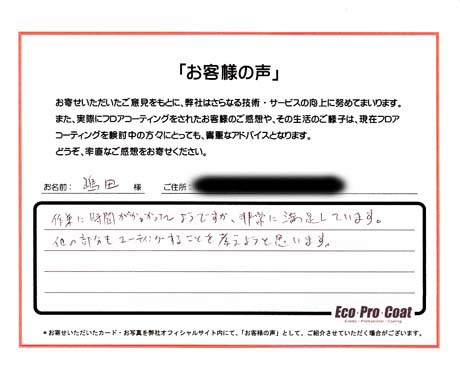 「お客様の声」
お寄せいただいたご意見をもとに、弊社はさらなる技術・サービスの向上に努めてまいります。
また、実際にフロアコーティングをされたお客様のご感想や、その生活のご様子は、現在フロア
コーティングを検討中の方々にとっても、貴重なアドバイスとなります。
どうぞ、率直なご感想をお寄せください。
お名前： 嶋田 様 ご住所：
作業に時間がかかったようですが、非常に満足しています。
他の部分もコーティングすることを考えようと思います。
Eco・Pro・Coat
Ecology・Professional・Coating
＊お寄せいただいたカード・お写真を弊社オフィシャルサイト内にて、「お客様の声」として、ご紹介させていただく場合がございます。